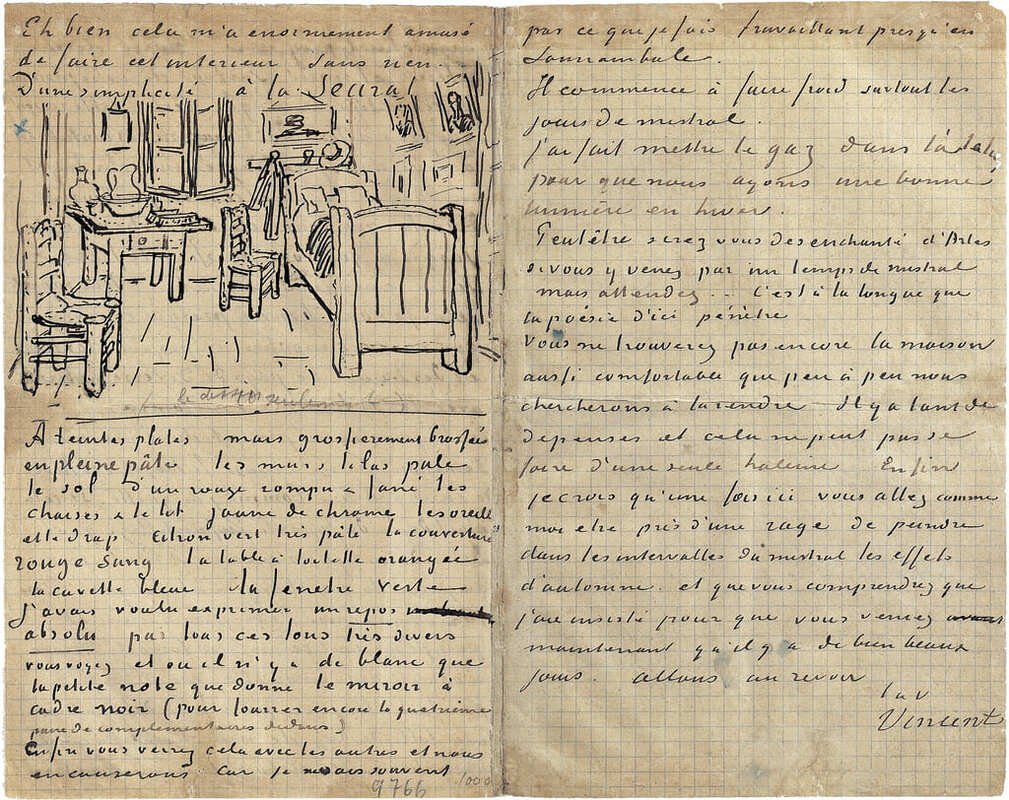 Eh bien cela m'a enormement amusé
de faire cet interieur sans rien.
D'une simplicité à la Seurat
A teintes plates mais grossierement brossées
en pleine pâte les murs lilas pale
le sol d'un rouge rompu & fané les
chaises & le lit jaune de chrome les oreillers
et le drap citron vert très pâle la couverture
rouge sang la table à toilette orangée
la cuvette bleue la fenetre verte
J'avais voulu exprimer un repos
absolu par tous ces tons très divers
vous voyez et où il n'y a de blanc que
la petite note que donne le miroir à
cadre noir (pour fourrer encore la quatrième
paire de complementaires dedans)
Enfin vous verrez cela avec les autres et nous
en causerons car je ne sais souvent
9766
1000
par ce que je fais travaillant presqu'en
somnambule.
Il commence à faire froid surtout les
jours de mistral.
J'ai fait mettre le gaz dans l'atelier
pour que nous ayons une bonne
lumière en hiver.
Peutêtre serez vous desenchanté d'Arles
si vous y venez par un temps de mistral
mais attendez .. C'est à la longue que
la poésie d'ici pénètre
Vous ne trouverez pas encore la maison
aussi comfortable que peu à peu nous
chercherons à la rendre Il y a tant de
depenses et cela ne peut pas se
faire d'une seule haleine Enfin
je crois qu'une fois ici vous allez comme
moi etre pris d'une rage de peindre
dans les intervalles du mistral les effets
d'automne. et que vous comprendrez que
j'aie insisté pour que vous venez
maintenant qu'il y a de bien beaux
jours. allons au revoir
t. à v
Vincent